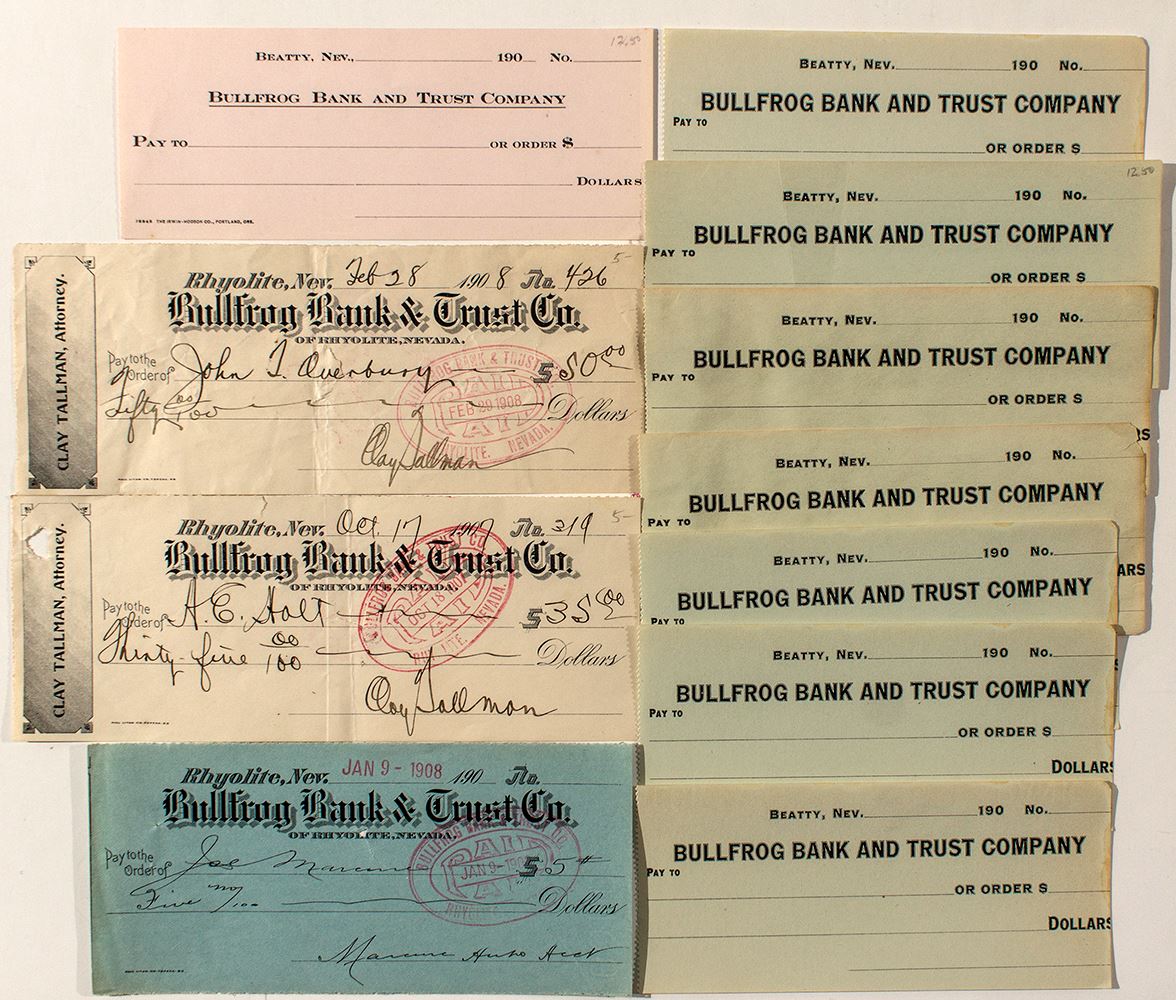 12.50
BEATTY, NEV., 190 No.
BULLFROG BANK AND TRUST COMPANY
PAY TO OR ORDER $
DOLLARS
THE IRWIN-HODSON CO., PORTLAND, ORE.
5-
CLAY TALLMAN, Attorney.
Rhyolite, Nev. Feb 28 1908 No. 426
Bullfrog Bank & Trust Co.
OF RHYOLITE, NEVADA.
Pay to the Order of John T. Overbury $ 50.00
Fifty 00/100 Dollars
BULLFROG BANK & TRUST
PAID
FEB 29 1908
PAID
RHYOLITE, NEVADA.
Clay Tallman
5-
CLAY TALLMAN, Attorney.
Rhyolite, Nev. Oct. 17 1907 No. 319
Bullfrog Bank & Trust Co.
OF RHYOLITE, NEVADA.
Pay to the Order of A.E. Holt $ 35.00
Thirty-five 00/100 Dollars
PAID
OCT 18 1907
PAID
RHYOLITE, NEVADA
Clay Tallman
Rhyolite, Nev. JAN 9 - 1908 190 No.
Bullfrog Bank & Trust Co.
OF RHYOLITE, NEVADA.
Pay to the Order of Joe $ 5
Five no/100 Dollars
PAID
JAN 9- 190
PAID
Auto Acct
BEATTY, NEV. 190 No.
BULLFROG BANK AND TRUST COMPANY
PAY TO
OR ORDER $
12.50
BEATTY, NEV. 190 No.
BULLFROG BANK AND TRUST COMPANY
PAY TO
OR ORDER $
BEATTY, NEV. 190 No.
BULLFROG BANK AND TRUST COMPANY
PAY TO
OR ORDER $
RS
BEATTY, NEV. 190 No.
BULLFROG BANK AND TRUST COMPANY
PAY TO
BEATTY, NEV. 190 No.
ARS
BULLFROG BANK AND TRUST COMPANY
PAY TO
BEATTY, NEV. 190 No.
BULLFROG BANK AND TRUST COMPANY
PAY TO
OR ORDER $
DOLLARS
BEATTY, NEV. 190 No.
BULLFROG BANK AND TRUST COMPANY
PAY TO
OR ORDER $
DOLLARS